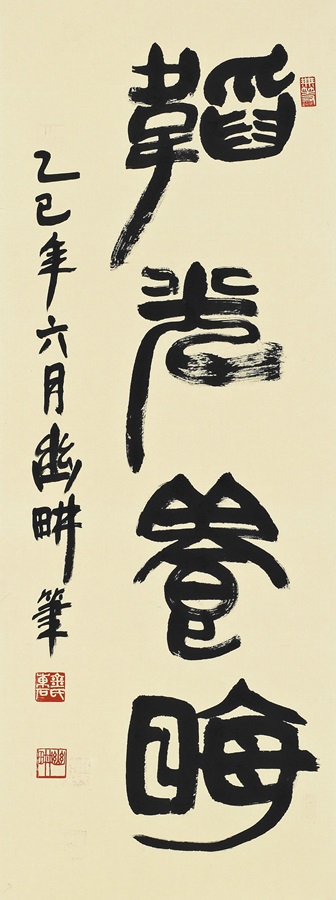 韜光養晦
乙巳年六月幽畊筆